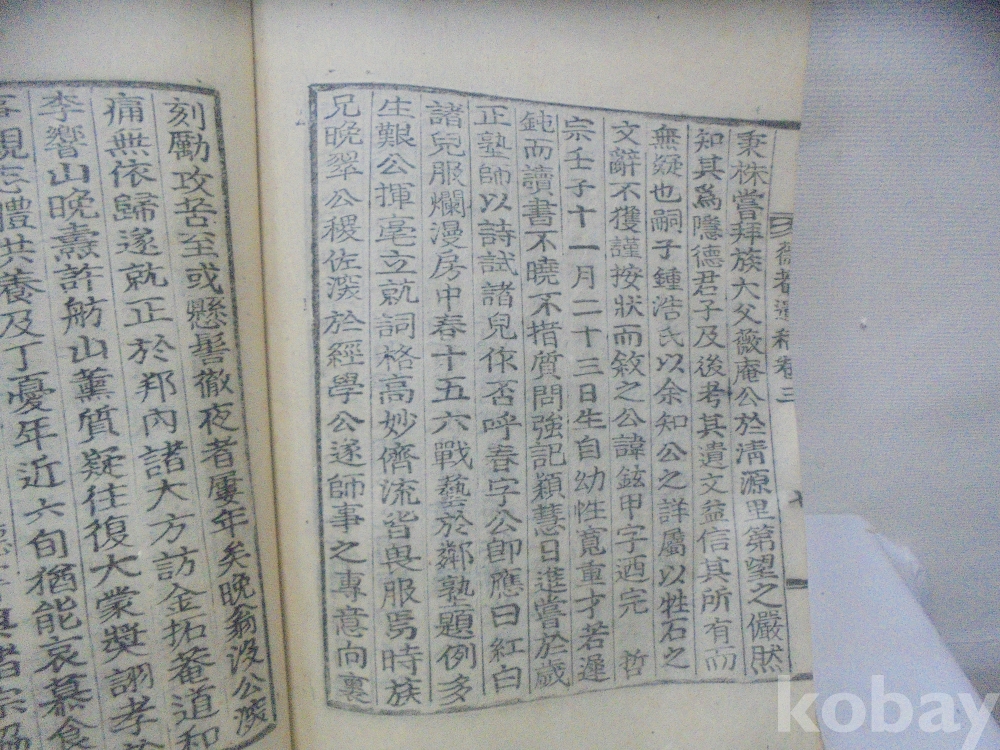 秉株嘗拜族大父薇庵公於淸源里第望之儼然
知其爲隱德君子及後考其遺文益信其所有而
無疑也嗣子鍾浩氏以余知公之詳屬以牲石之
文辭不獲謹按狀而敘之公諱鉉甲字迺完 哲
宗壬子十一月二十三日生自幼性寬重才若遲
鈍而讀書不曉不措質問強記穎慧日進嘗於歲
正塾師以詩試諸兒作否呼春字公卽應曰紅白
諸兒服爛漫房中春十五六戰藝於鄰塾題例多
生艱公揮毫立就詞格高妙儕流皆畏服焉時族
兄晩翠公稷佐邃於經學公遂師事之專意向裏
刻勵攻苦至或懸髻徹夜者屢年矣晩翁沒公
痛無依歸遂就正於邦內諸大方訪金拓菴道和
李響山晩燾許舫山薰質疑往復大蒙獎詡孝
志體共養及丁憂年近六旬猶能哀慕食
卷三
kobay